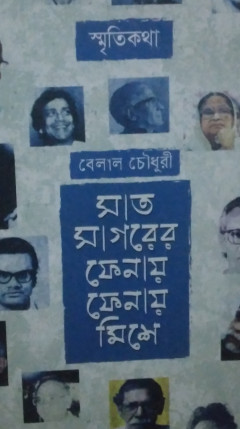 স্মৃতিকথা
বেলাল চৌধুরী
সাত
সাগরের
ফেনায়
ফেনায়
মিশে